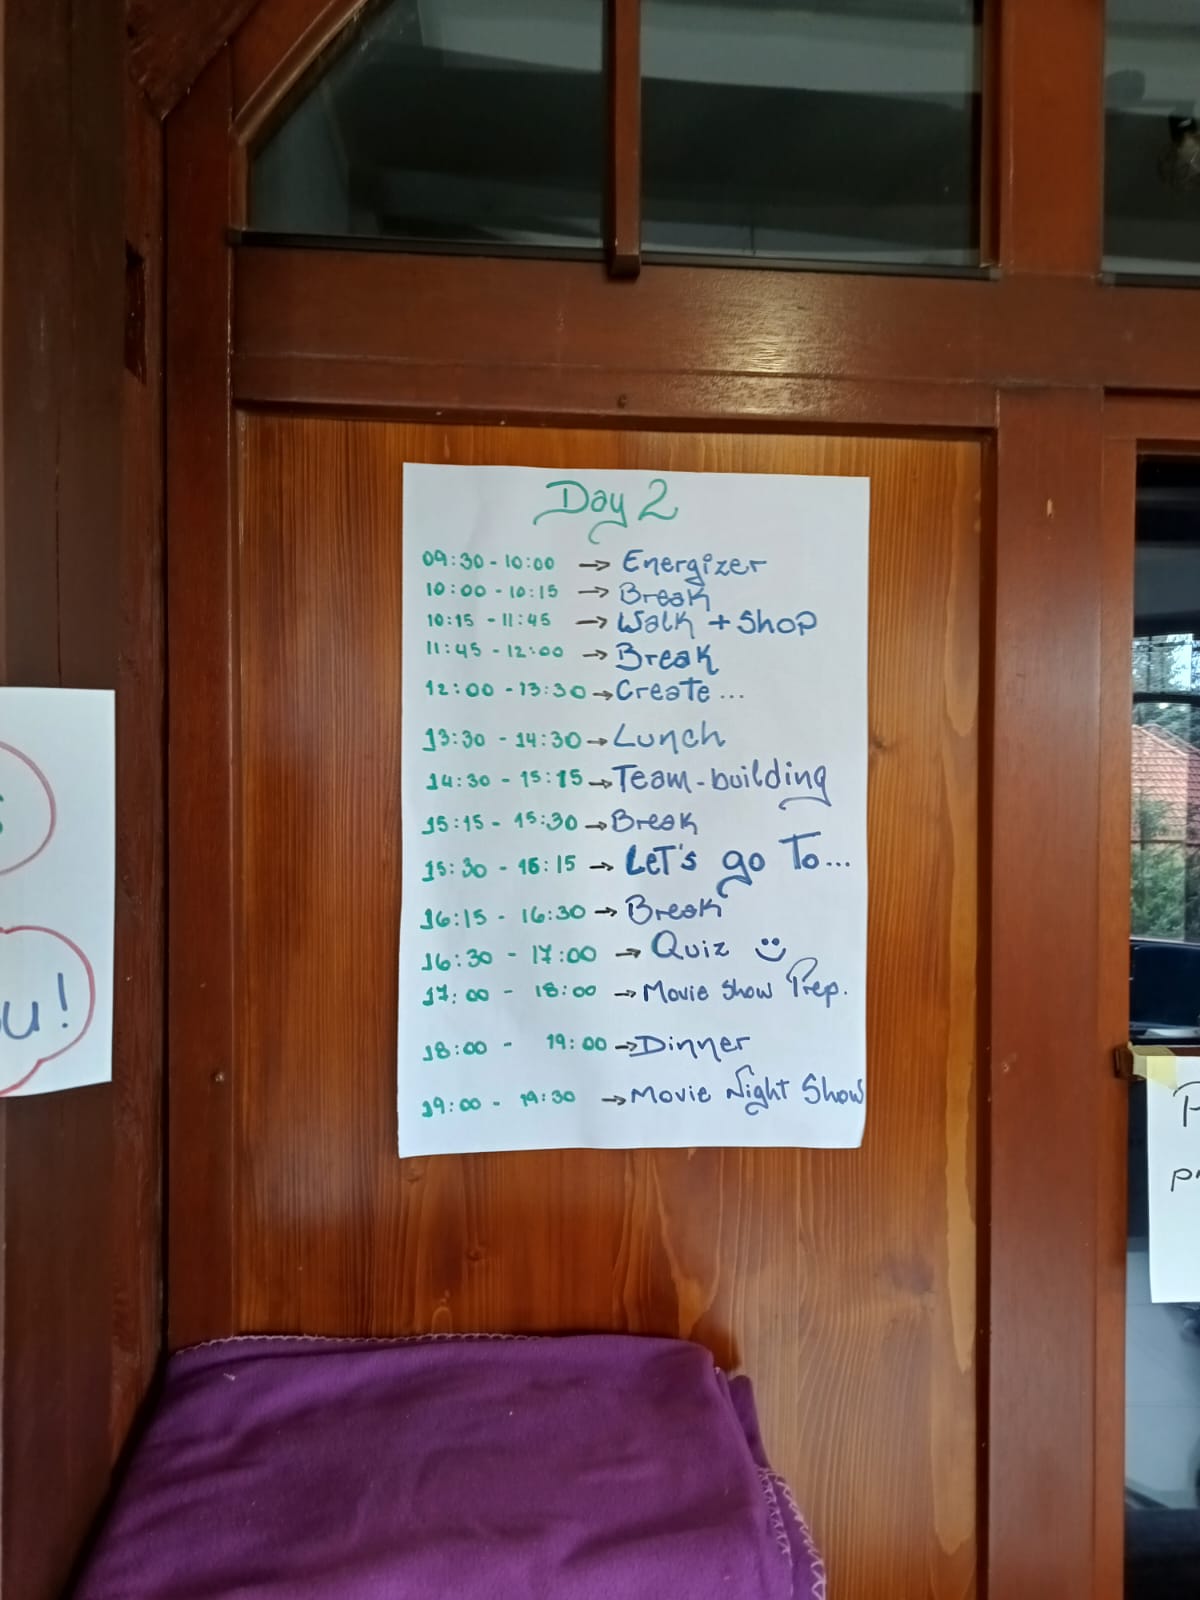 Day 2
09:30 - 10:00 → Energizer
10:00 - 10:15 → Break
10:15 - 11:45 → Walk + Shop
11:45 - 12:00 → Break
12:00 - 13:30 → Create...
13:30 - 14:30 → Lunch
14:30 - 15:15 → Team-building
15:15 - 15:30 → Break
15:30 - 16:15 → Let's go To...
16:15 - 16:30 → Break
16:30 - 17:00 → Quiz ☺
17:00 - 18:00 → Movie Show Prep.
18:00 - 19:00 → Dinner
19:00 - 19:30 → Movie Night Show